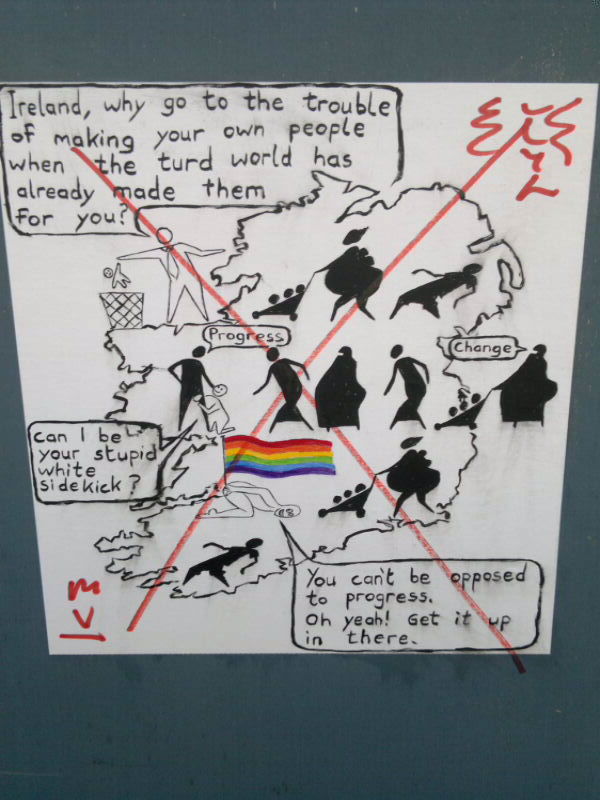 Ireland, why go to the trouble
of making your own people
when the turd world has
already made them
for you?
Progress
Change
Can I be
your stupid
white
sidekick?
You can't be opposed
to progress.
Oh yeah! Get it up
in there.